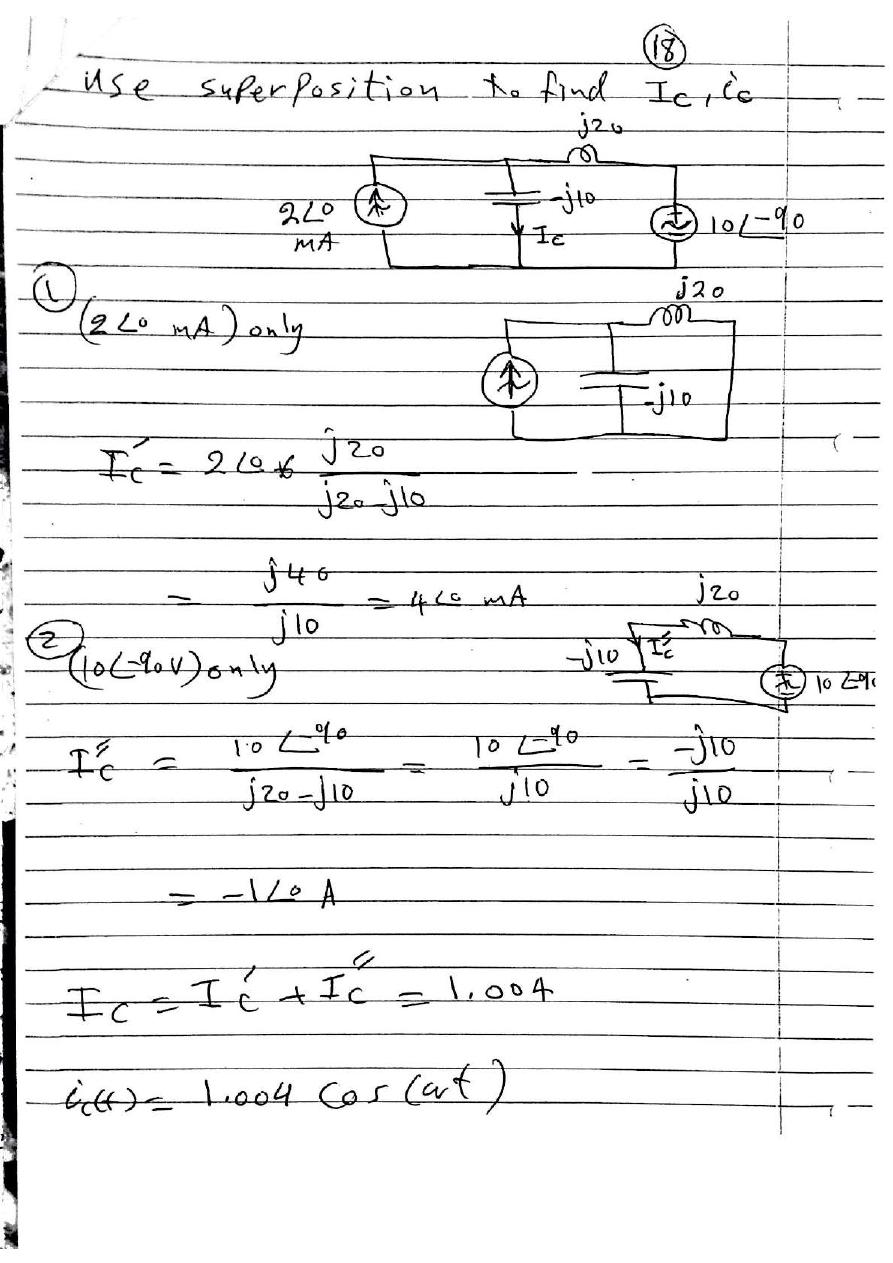 18
Use superposition to find Ic, ic
j20
-j10
2∠0 mA
Ic
10∠-90
1
(2∠0 mA) only
j20
-j10
Ic' = 2∠0 * j20 / j20-j10
= j40 / j10 = 4∠0 mA
j20
2
(10∠-90V) only
-j10
Ic''
10∠-90
Ic'' = 10∠-90 / j20-j10 = 10∠-90 / j10 = -j10 / j10
= -1∠0 A
Ic = Ic' + Ic'' = 1.004
ic(t) = 1.004 Cos(ωt)